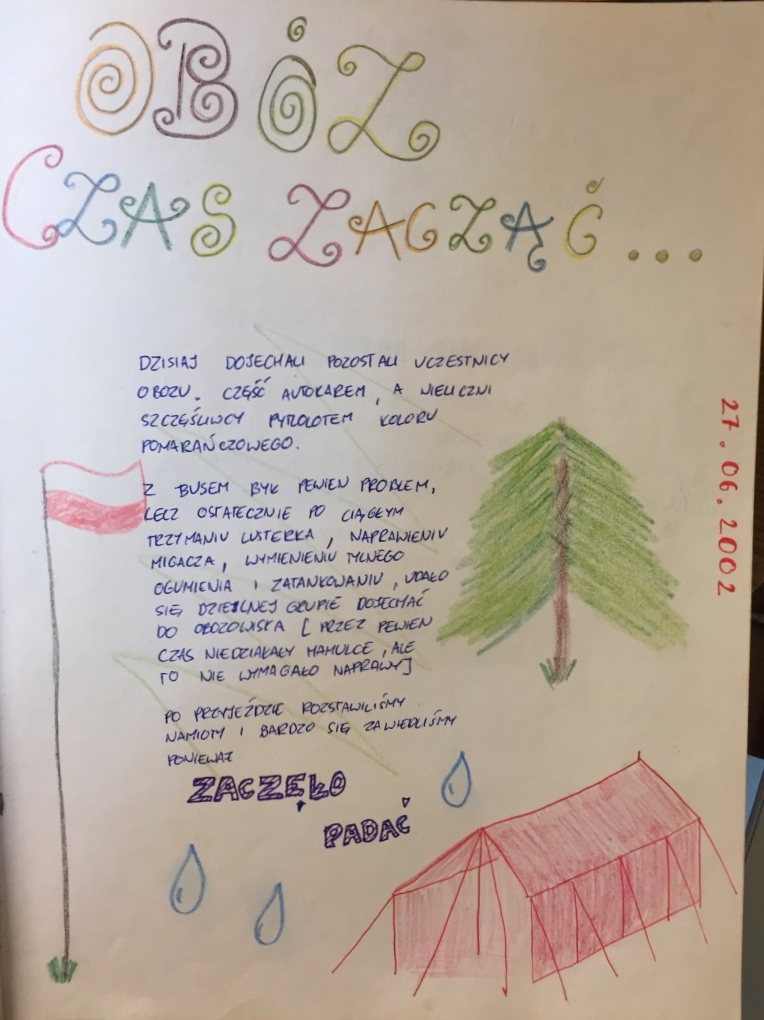 OBÓZ
CZAS ZACZĄĆ...
DZISIAJ DOJECHALI POZOSTALI UCZESTNICY
OBOZU. CZĘŚĆ AUTOKAREM, A NIELICZNI
SZCZĘŚLIWCY PYTLOLOTEM KOLORU
POMARAŃCZOWEGO.
Z BUSEM BYŁ PEWIEN PROBLEM,
LECZ OSTATECZNIE PO CIĄGŁYM
TRZYMANIU LUSTERKA, NAPRAWIENIU
MIGACZA, WYMIENIENIU TYLNEGO
OGUMIENIA I ZATANKOWANIU, UDAŁO
SIĘ DZIELNEJ GRUPIE DOJECHAĆ
DO OBOZOWISKA [PRZEZ PEWIEN
CZAS NIEDZIAŁAŁY HAMULCE, ALE
TO NIE WYMAGAŁO NAPRAWY]
PO PRZYJEŹDZIE ROZSTAWILIŚMY
NAMIOTY I BARDZO SIĘ ZAWIEDLIŚMY
PONIEWAŻ
ZACZĘŁO
PADAĆ
27.06.2002